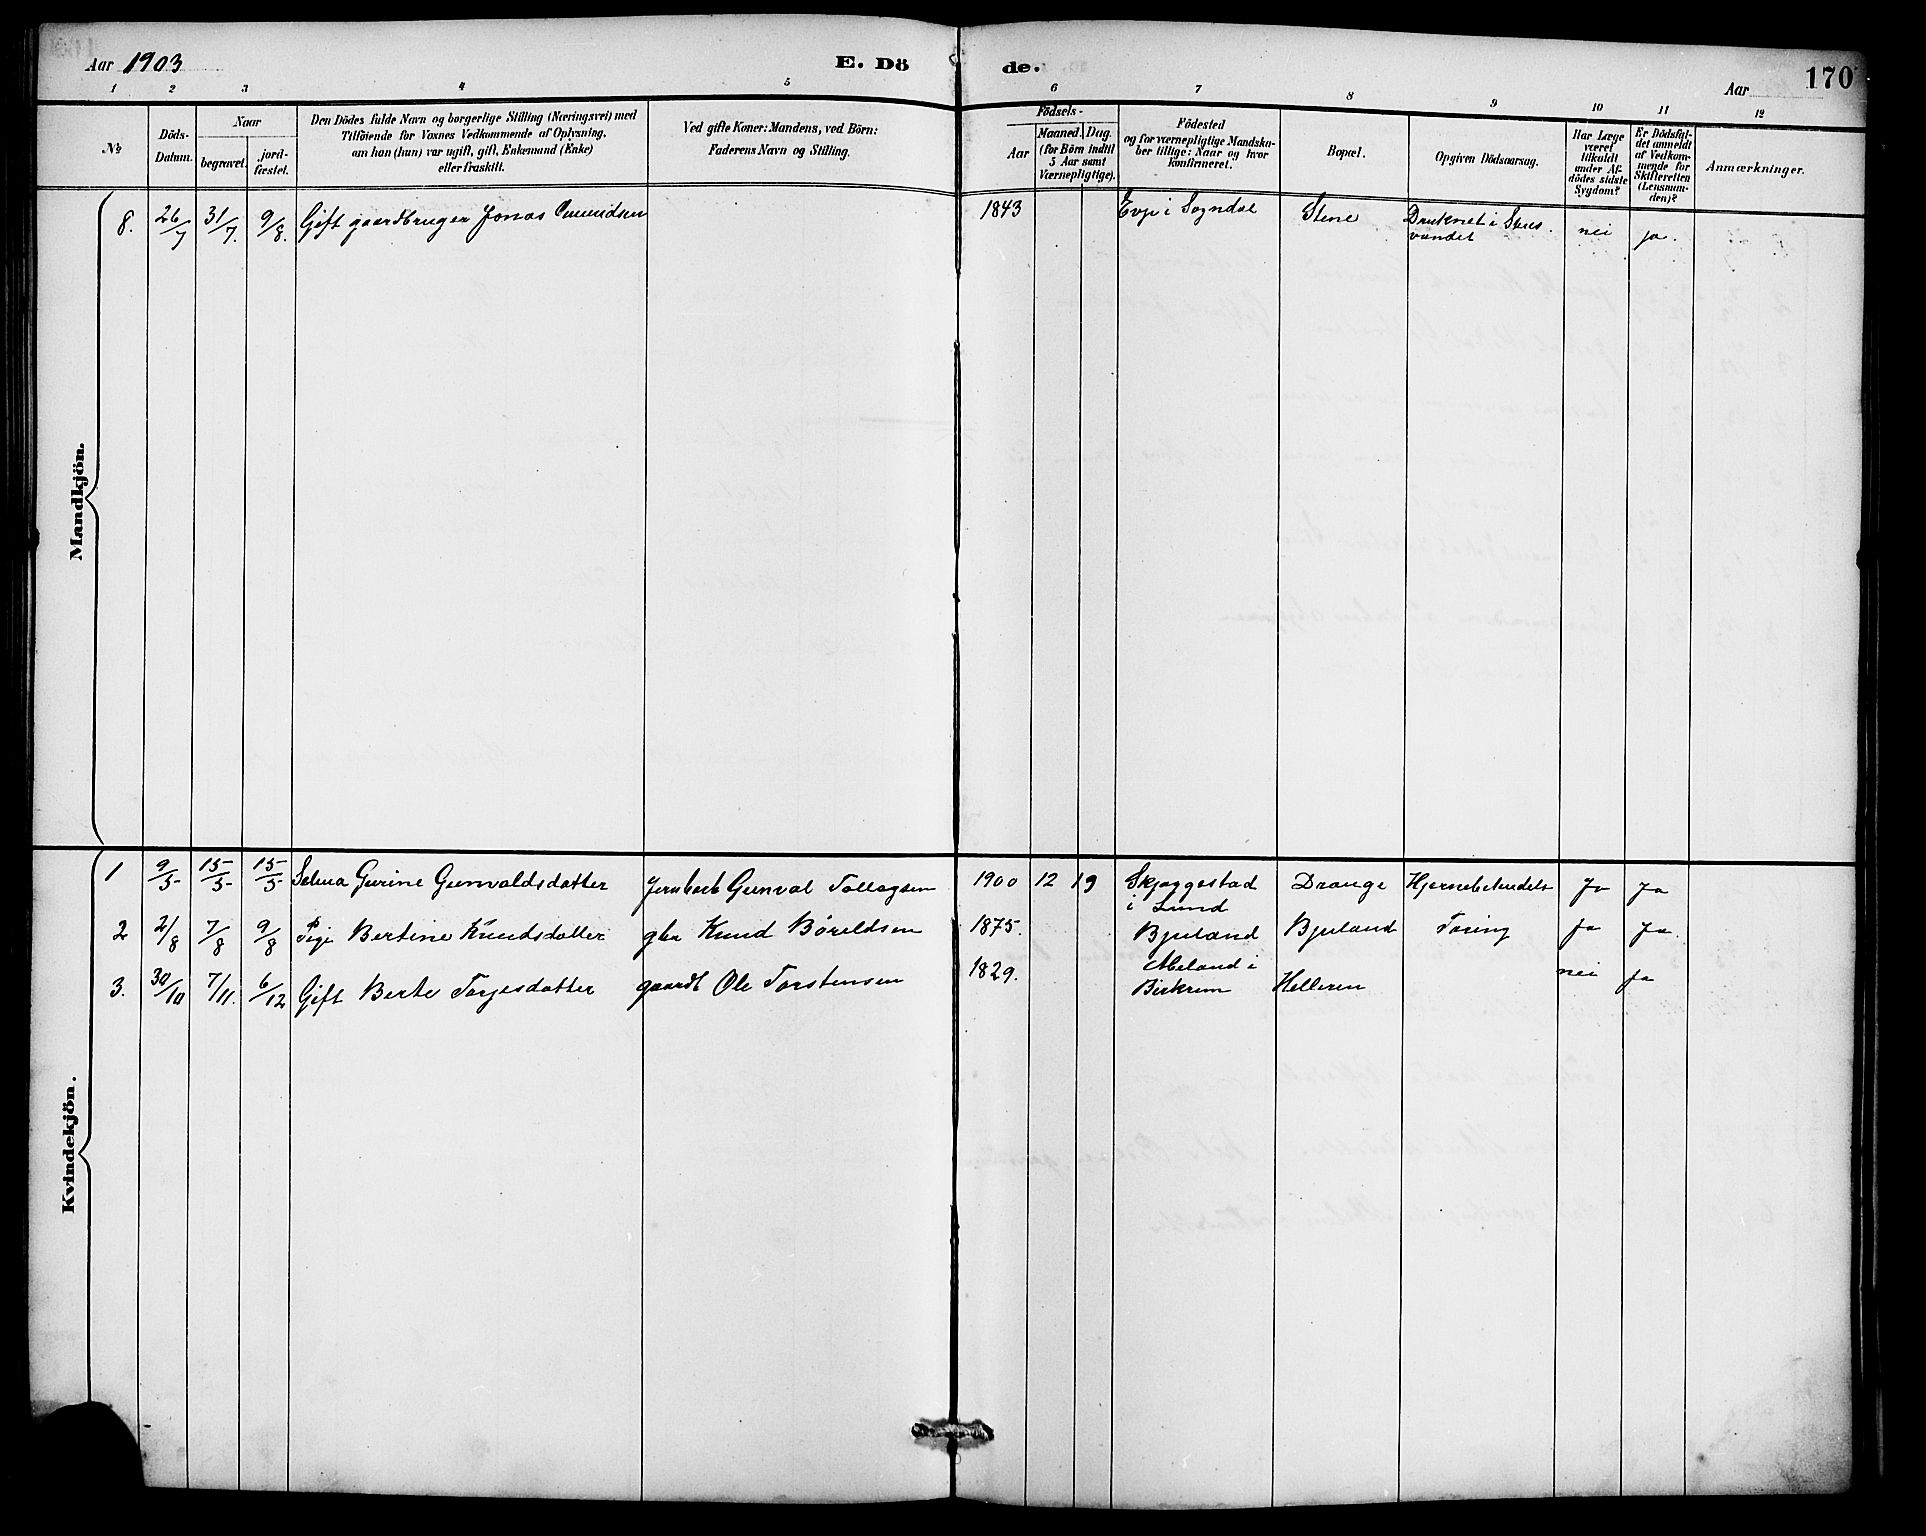 Aar 1903
E. Dö
de.
Aar
170
1 2 3 4 5 6 7 8 9 10 11 12
No
Döds-
Datum.
Naar
begravet.
jord-
fæstet.
Den Dödes fulde Navn og borgerlige Stilling (Næringsvei) med
Tilföiende for Voxnes Vedkommende af Oplysning,
om han (hun) var ugift, gift, Enkemand (Enke)
eller fraskilt.
Ved gifte Koner: Mandens, ved Börn:
Faderens Navn og Stilling.
Födsels-
Aar
Maaned. Dag.
(for Börn indtil
5 Aar samt
Værnepligtige).
Födested
og for værnepligtige Mandska-
ber tillige: Naar og hvor
konfirmeret.
Bopæl.
Opgiven Dödsaarsag.
Har Læge
været
tilkaldt
under Af-
dödes sidste
Sygdom?
Er Dödsfal-
det anmeldt
af Vedkom-
mende for
Skifteretten
(Lensman-
den)?
Anmærkninger.
Mandkjön.
8. 26/7 31/7. 9/8. Gift gaardbruger Jonas 1843 Evje i Sogndal Stene Druknet i Stens- nei ja.
vandet
Kvindekjön.
1 9/5 15/5 15/5 Selma Gurine Gunvaldsdatter Gunval Tollagsen 1900 12 19 Skjæggestad Drange Hjernebetændelse Ja Ja
i Lund
2 2/8 7/8 9/8 Pige Bertine Knudsdatter gbr Knud Båreldsen 1875. Bjuland Bjuland Tæring Ja Ja.
3. 30/10 7/11. 6/12 Gift Berte Torgesdatter gaardb Ole Torstensen 1829. Meland i Helleren nei Ja
Birkrem